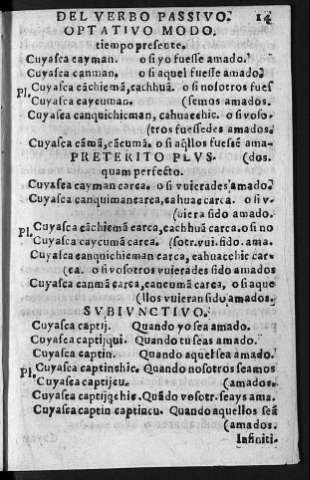 DEL VERBO PASSIVO. 14
OPTATIVO MODO.
tiempo presente.
Cuyasca cayman. o si yo fuesse amado.
Cuyasca canman. o si aquel fuesse amado.
Pl. Cuyasca cāchiemā, cachhuā. o si nosotros fues
Cuyasca caycuman. (semos amados.
Cuyasca canquichicman, cahuacchic. o si voso-
(tros fuessedes amados.
Cuyasca cāmā, cācumā. o si aq̄llos fuessē ama-
PRETERITO PLVS- (dos.
quam perfecto.
Cuyasca cayman carca. o si vuierades amado.
Cuyasca canquimancarca, cahuac carca. o si v-
(uiera sido amado.
Pl. Cuyasca cāchiemā carca, cachhuā carca. o si no
Cuyasca caycumā carca. (sotr. vui. sido. ama.
Cuyasca canquichicman carca, cahuacchic car-
(ca. o si vosotros vuierades sido amados
Cuyasca canmā carca, cancumā carca, o si aque
(llos vuieran sido amados.
SVBIVNCTIVO.
Cuyasca captij. Quando yo sea amado.
Cuyasca captijqui. Quando tu seas amado.
Cuyasca captin. Quando aquel sea amado.
Pl. Cuyasca captinchic. Quando nosotros seamos
Cuyasca captijcu. (amados.
Cuyasca captijq̄chic. Quādo vosotr. seays ama.
Cuyasca captin captincu. Quando aquellos seā
(amados.
Infiniti-